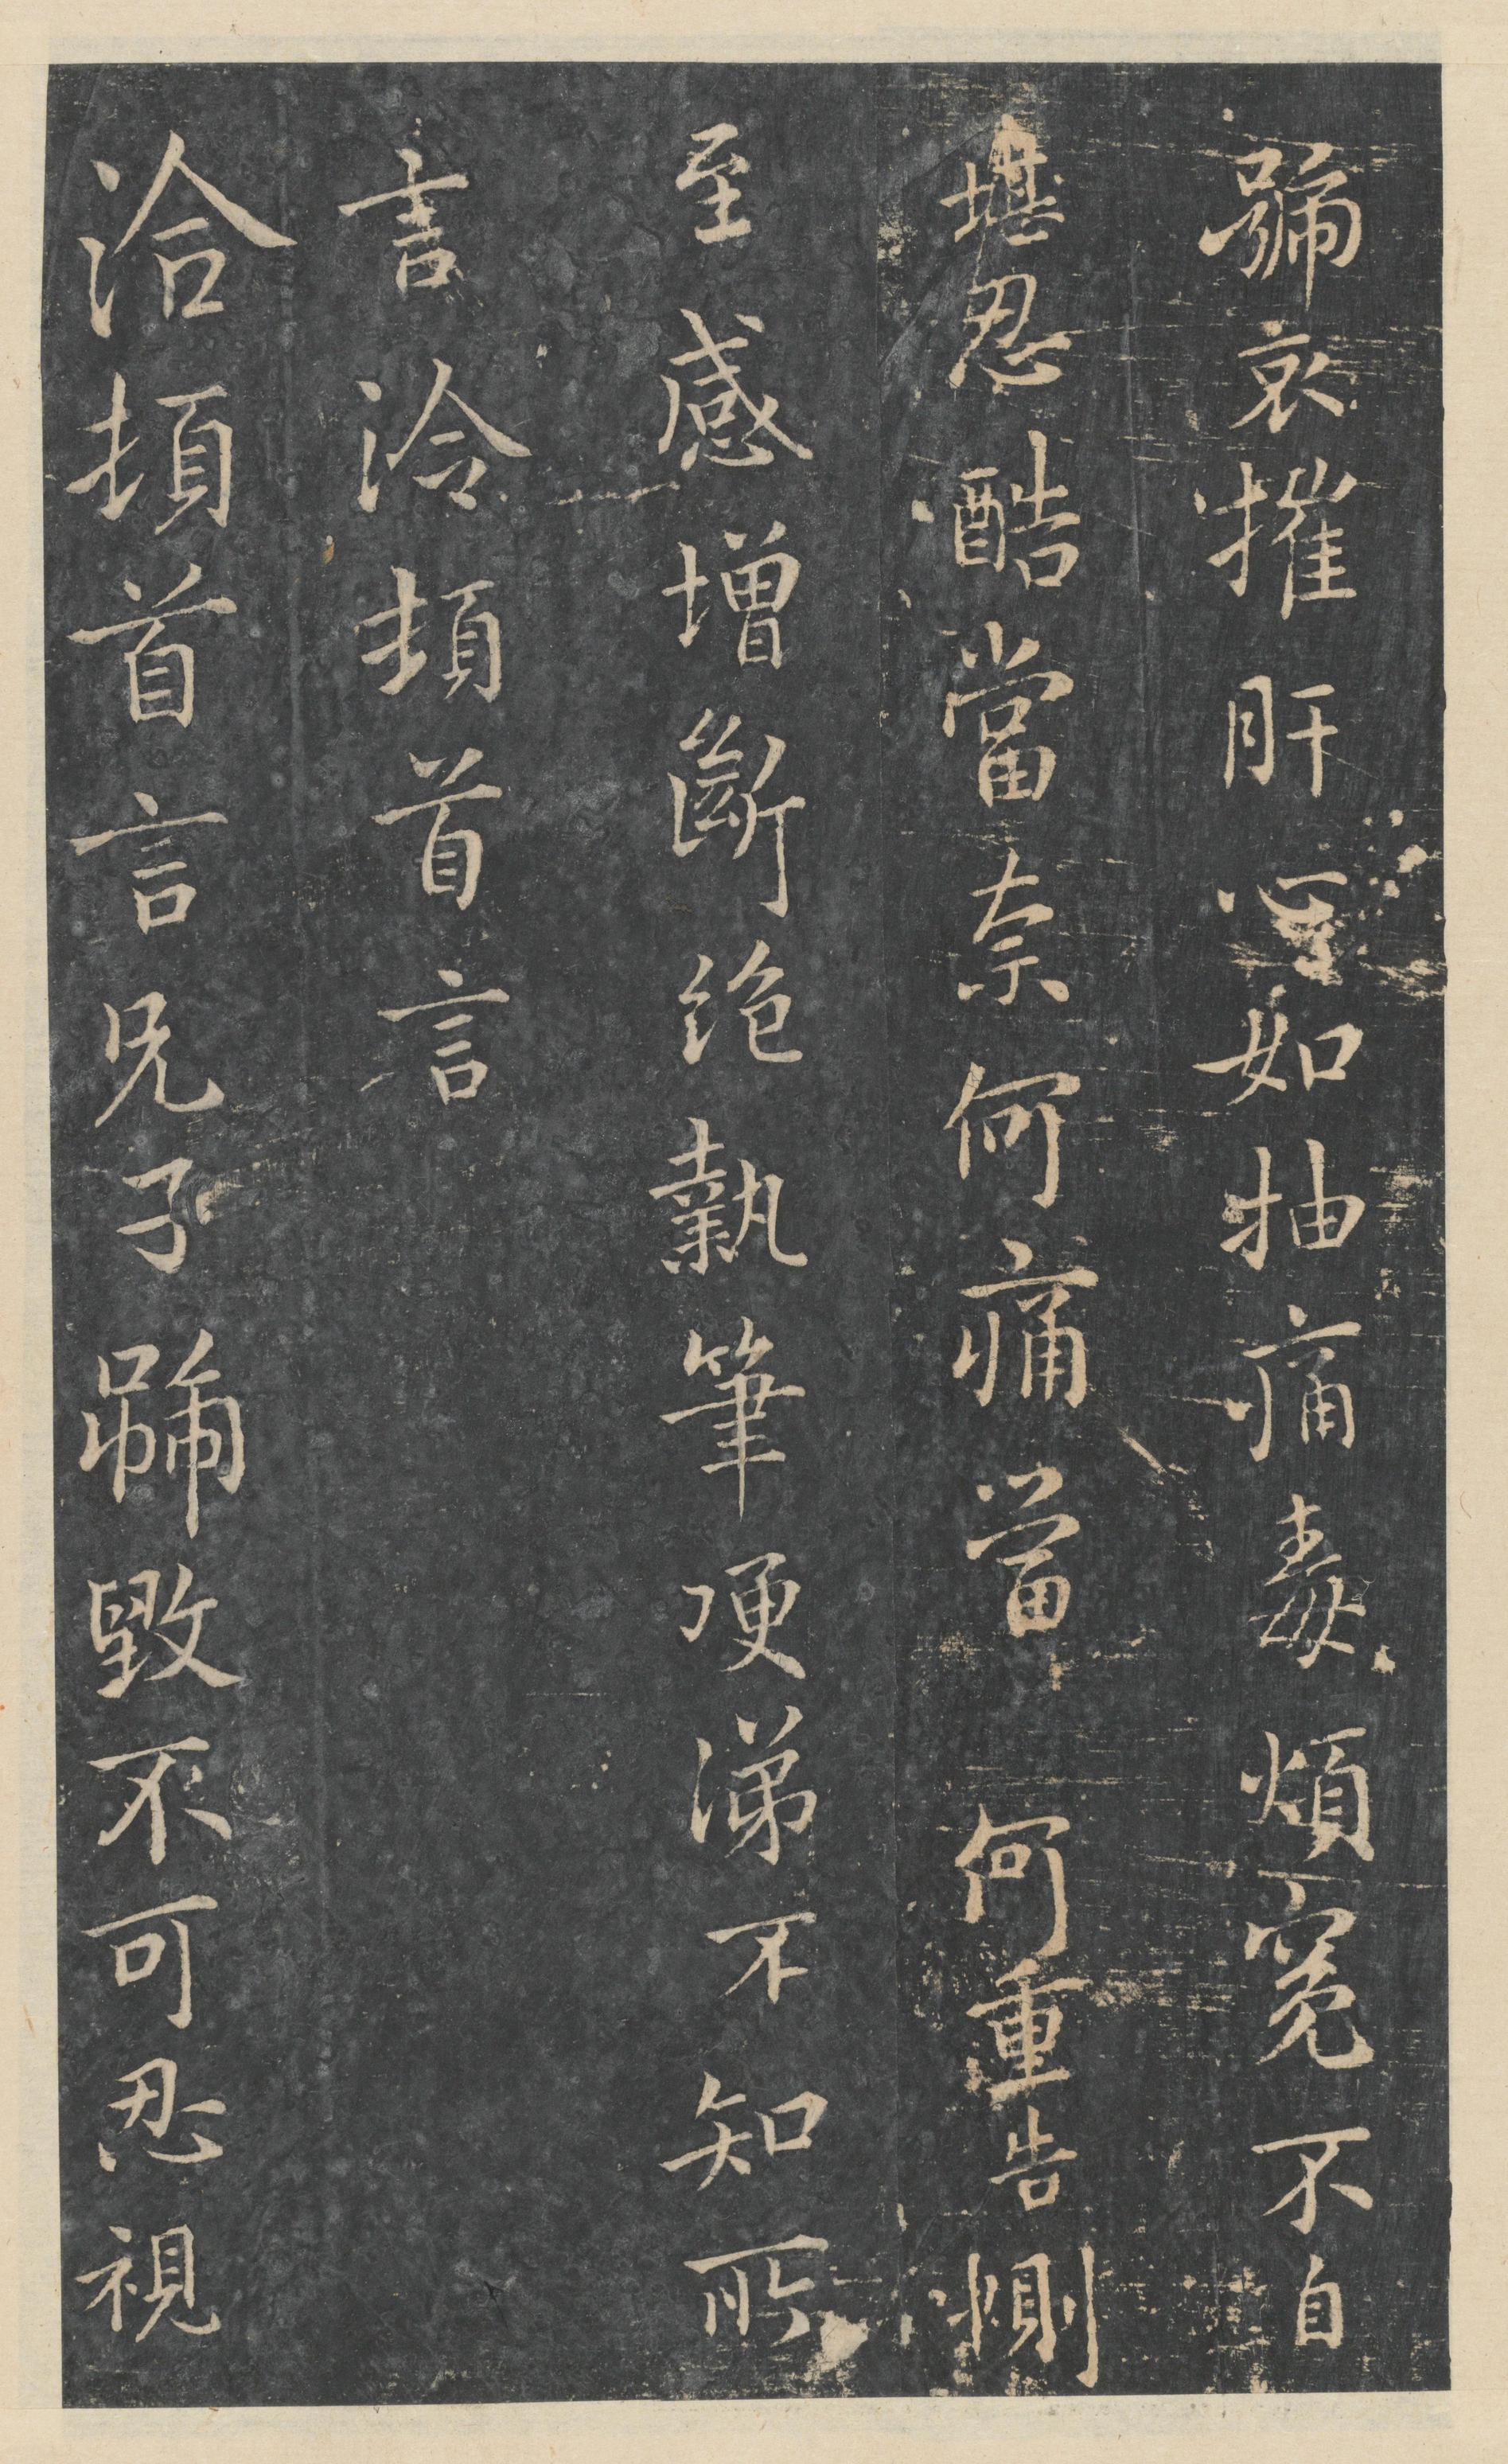 號哀摧肝心如抽痛毒煩冤不自
堪忍酷當奈何痛當何重告惻
至感增斷絶執筆哽涕不知所
言洽頓首言
洽頓首言兄子號毀不可忍視